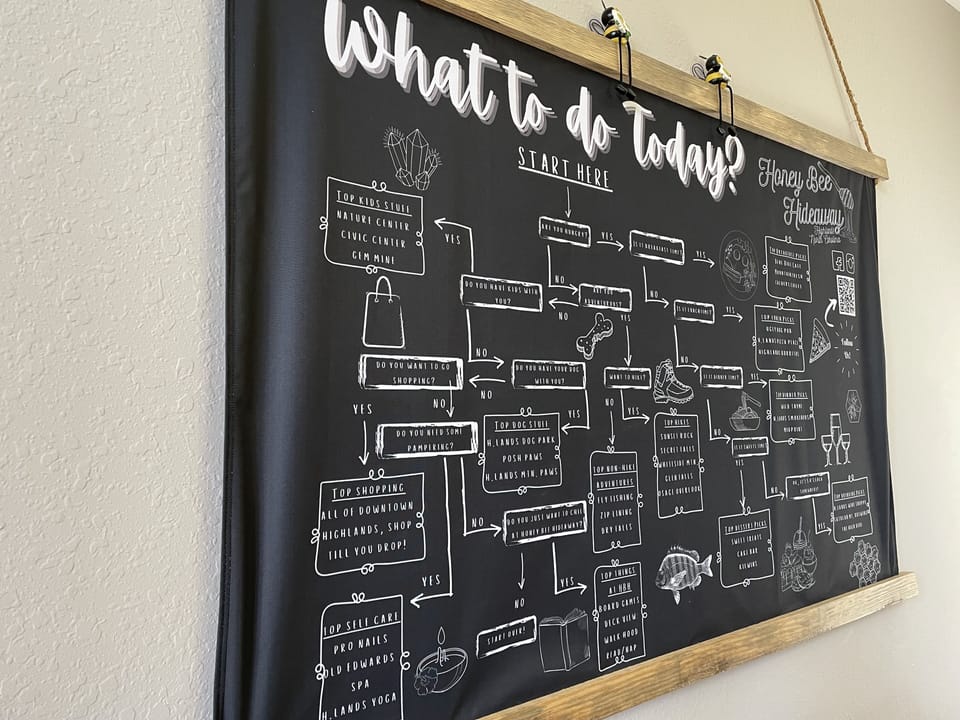 What to do Today?
START HERE
Honey Bee
Hideaway
Highlands
North Carolina
ARE YOU HUNGRY?
YES
IS IT BREAKFAST TIME?
YES
TOP BREAKFAST PICKS
NO
ARE YOU
ADVENTUROUS?
NO
DO YOU HAVE KIDS WITH
YOU?
YES
TOP KIDS STUFF
NATURE CENTER
CIVIC CENTER
GEM MINE
NO
IS IT LUNCHTIME?
YES
TOP LUNCH PICKS
UGLY DOG PUB
H.LANDS PIZZA PLACE
Follow
Us!
YES
WANT TO HIKE?
NO
IS IT DINNER TIME?
YES
TOP DINNER PICKS
WILD THYME
NO
DO YOU HAVE YOUR DOG
WITH YOU?
NO
DO YOU WANT TO GO
SHOPPING?
YES
NO
YES
TOP DOG STUFF
H.LANDS DOG PARK
POSH PAWS
H.LANDS MTN. PAWS
NO
YES
TOP HIKES
SUNSET ROCK
SECRET FALLS
WHITESIDE MTN.
GLEN FALLS
OSAGE OVERLOOK
NO
IS IT SWEETS TIME?
YES
NO
YES
TOP BEVERAGE PICKS
DO YOU NEED SOME
PAMPIRING?
TOP NON-HIKE
ADVENTURES
FLY FISHING
ZIP LINING
DRY FALLS
TOP SHOPPING
ALL OF DOWNTOWN
HIGHLANDS, SHOP
TILL YOU DROP!
NO
DO YOU JUST WANT TO CHILL
AT HONEY BEE HIDEAWAY?
TOP DESSERT PICKS
SWEET TREATS
CAKE BAR
KILWINS
YES
YES
NO
TOP THINGS
AT HBH
BOARD GAMES
DECK VIEW
WALK HOOD
READ/NAP
START OVER!
TOP SELF CARE
PRO NAILS
OLD EDWARDS
SPA
H.LANDS YOGA